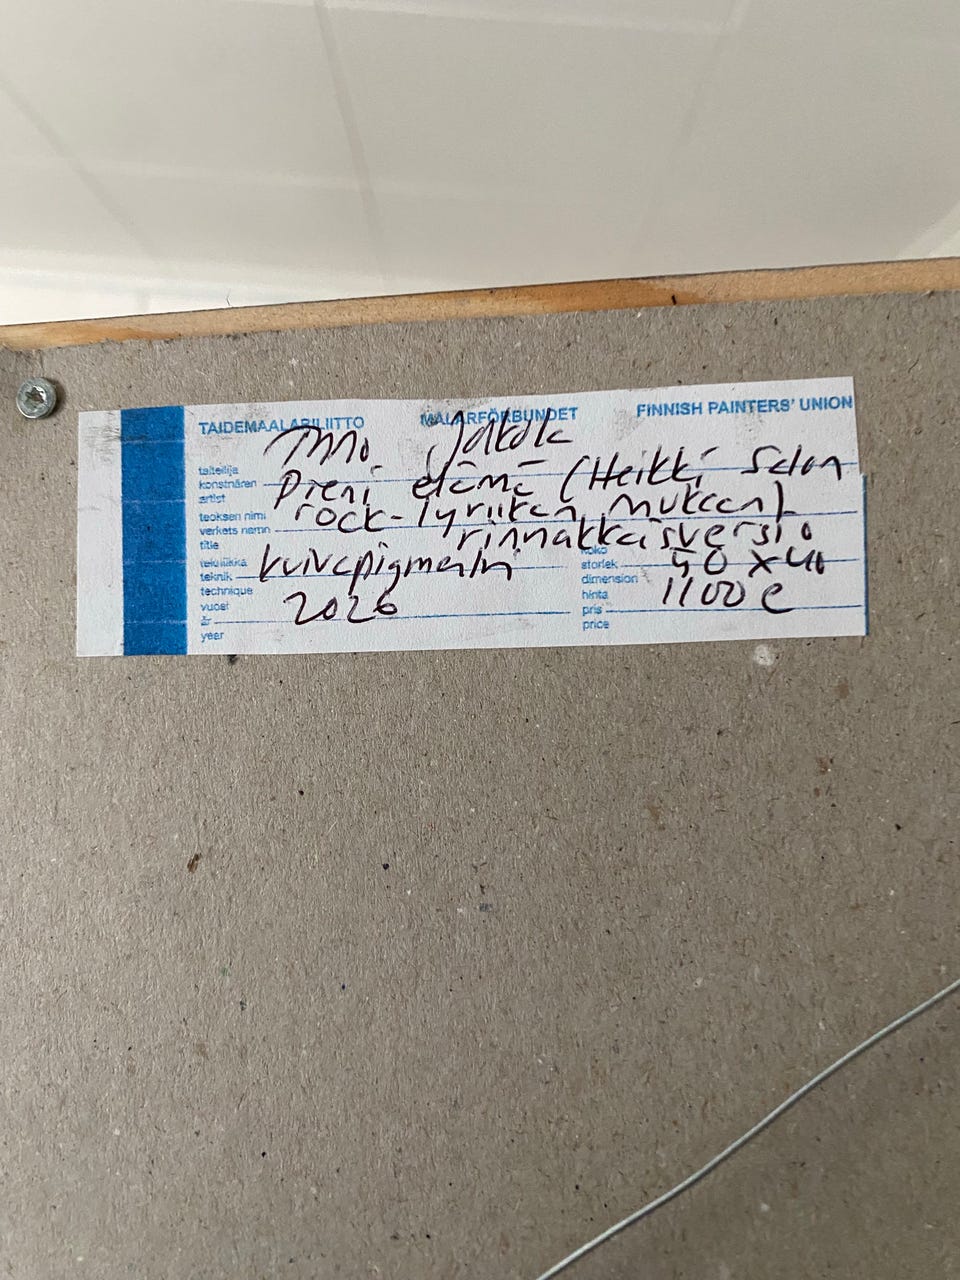 TAIDEMAALARILIITTO MÅLARFÖRBUNDET FINNISH PAINTERS' UNION
taiteilija
konstnären
artist
Jokela
teoksen nimi
verkets namn
title
Pieni elämä (Heikki Salon
rock-lyriikan mukaan)
rinnakkaisversio
tekniikka
teknik
technique
kuivapigmentti
koko
storlek
dimension
50 x 40
vuosi
år
year
2026
hinta
pris
price
1100 e